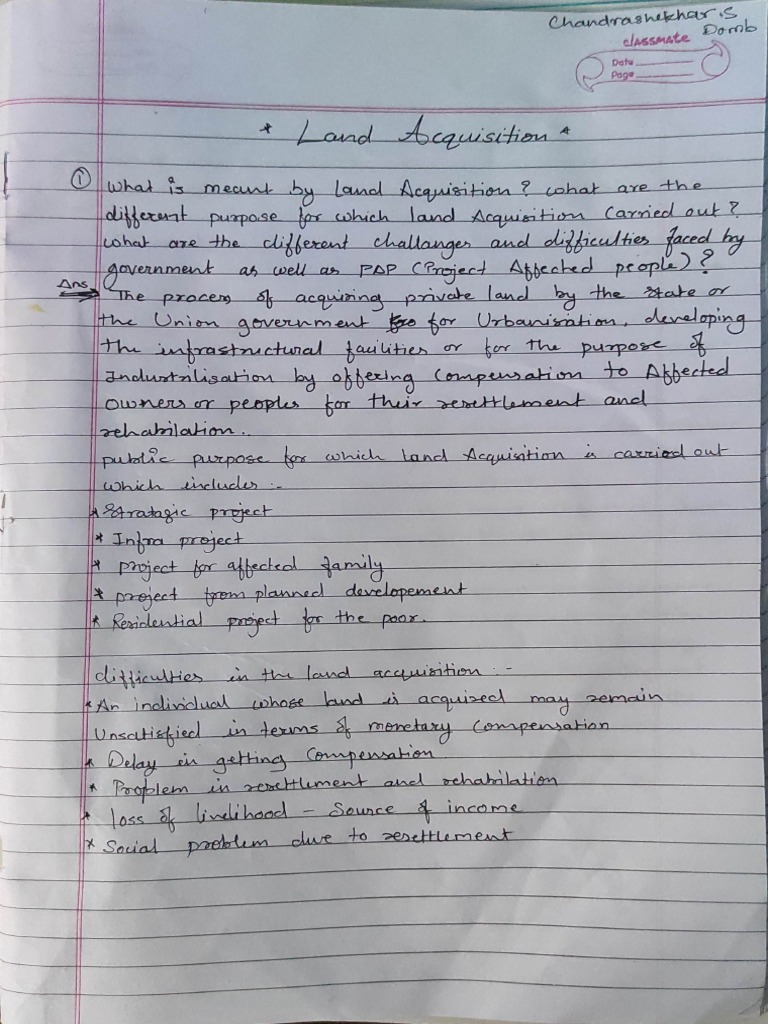 Chandrashekhar.S
Domb
classmate
Date
Page
* Land Acquisition *
① What is meant by Land Acquisition? what are the
different purpose for which land Acquisition Carried out?
what are the different challanges and difficulties faced by
government as well as PAP (Project Affected people)?
Ans The process of acquiring private land by the state or
the Union government for Urbanisation, developing
the infrastructural facilities or for the purpose of
Industrilisation by offering Compensation to Affected
owners or peoples for their resettlement and
rehabilation.
public purpose for which land Acquisition is carried out
which includes :-
* Stratagic project
* Infra project
* project for affected family
* project from planned developement
* Residential project for the poor.
difficulties in the land acquisition :-
* An individual whose land is acquired may remain
Unsatisfied in terms of monetary Compensation
* Delay in getting Compensation
* Problem in resettlement and rehabilation
* loss of livelihood - Source of income
* Social problem due to resettlement